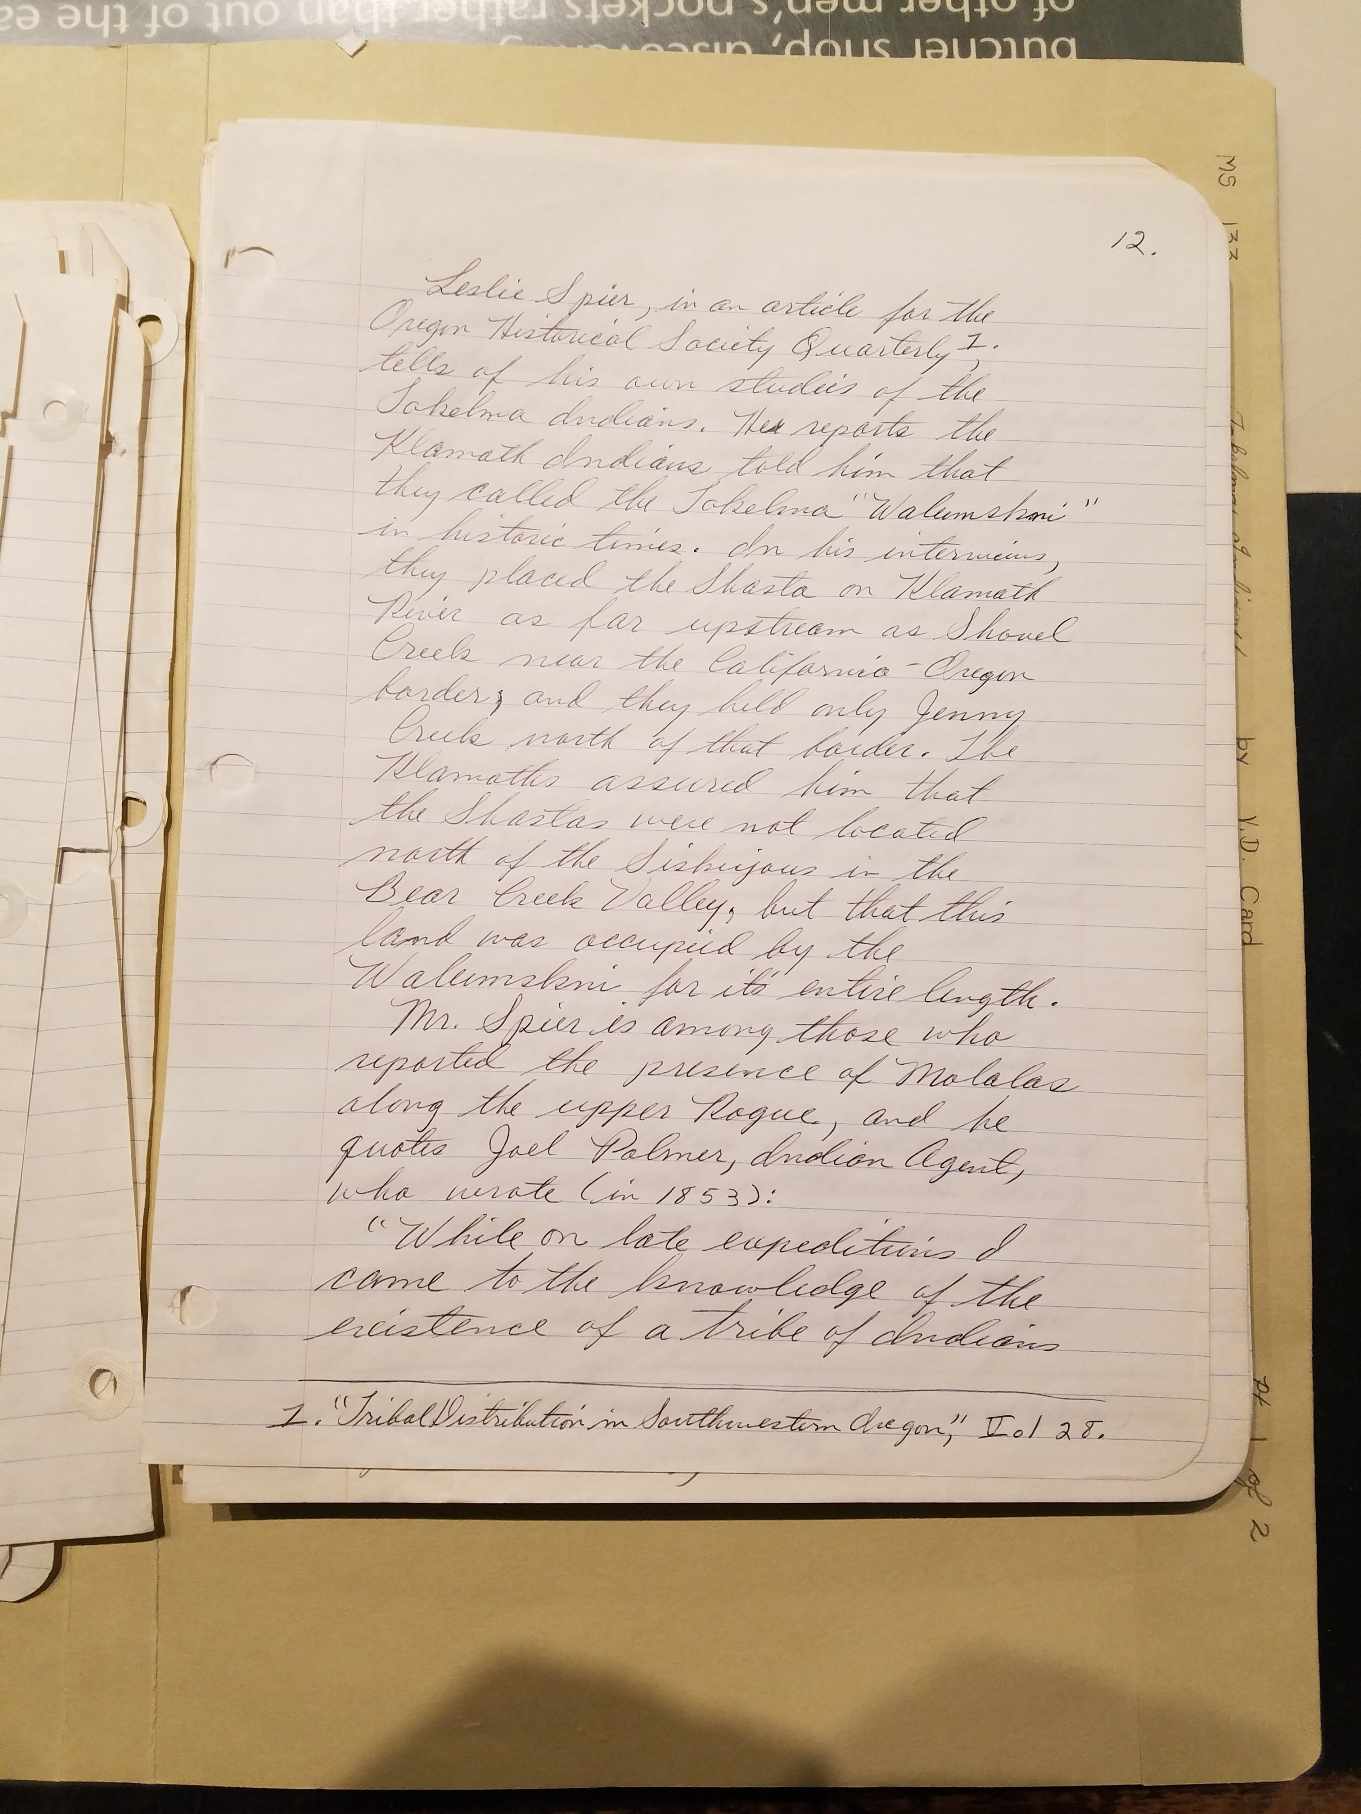 of other men's pockets rather than out of the ea
butcher shop, discovering
MS 133
by V.D. Card
pt 1 of 2
12.
Leslie Spier, in an article for the
Oregon Historical Society Quarterly 1.,
tells of his own studies of the
Takelma Indians. He reports the
Klamath Indians told him that
they called the Takelma "Walumskni"
in historic times. In his interviews,
they placed the Shasta on Klamath
River as far upstream as Shovel
Creek near the California-Oregon
border; and they held only Jenny
Creek north of that border. The
Klamaths assured him that
the Shastas were not located
north of the Siskiyous in the
Bear Creek Valley, but that this
land was occupied by the
Walumskni for it's entire length.
Mr. Spier is among those who
reported the presence of Molalas
along the upper Rogue, and he
quotes Joel Palmer, Indian Agent,
who wrote (in 1853):
"While on late expeditions I
came to the knowledge of the
existence of a tribe of Indians
1. "Tribal Distribution in Southwestern Oregon," Vol 28.